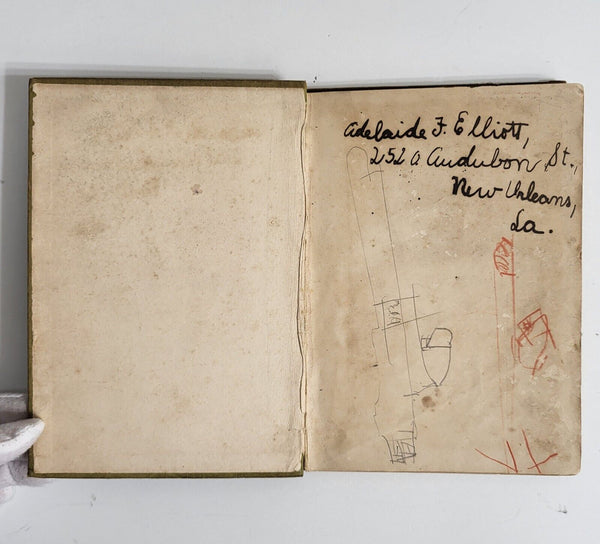 Adelaide F. Elliott,
2520 Audubon St.,
New Orleans,
La.